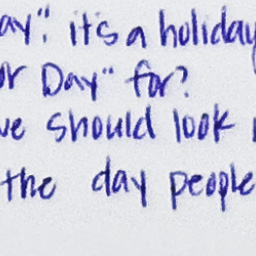 ay". it's a holiday
or Day" for?
ve should look
the day people